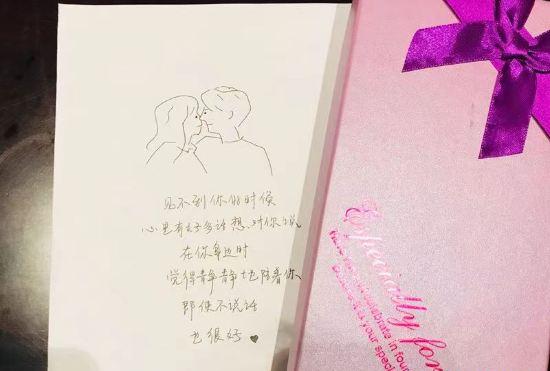 见不到你的时候
心里有好多话想对你说
在你身边时
觉得静静地陪着你
即使不说话
也很好
Especially for
celebrate in
your speci